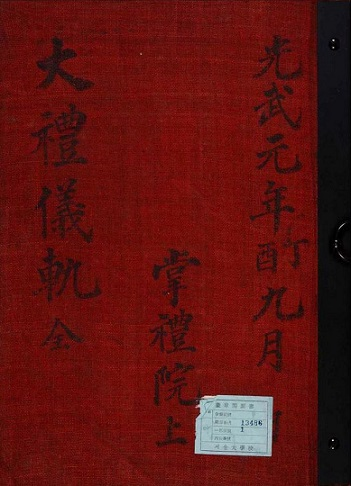 光武元年丁酉九月
掌禮院上
大禮儀軌 全
13486
1